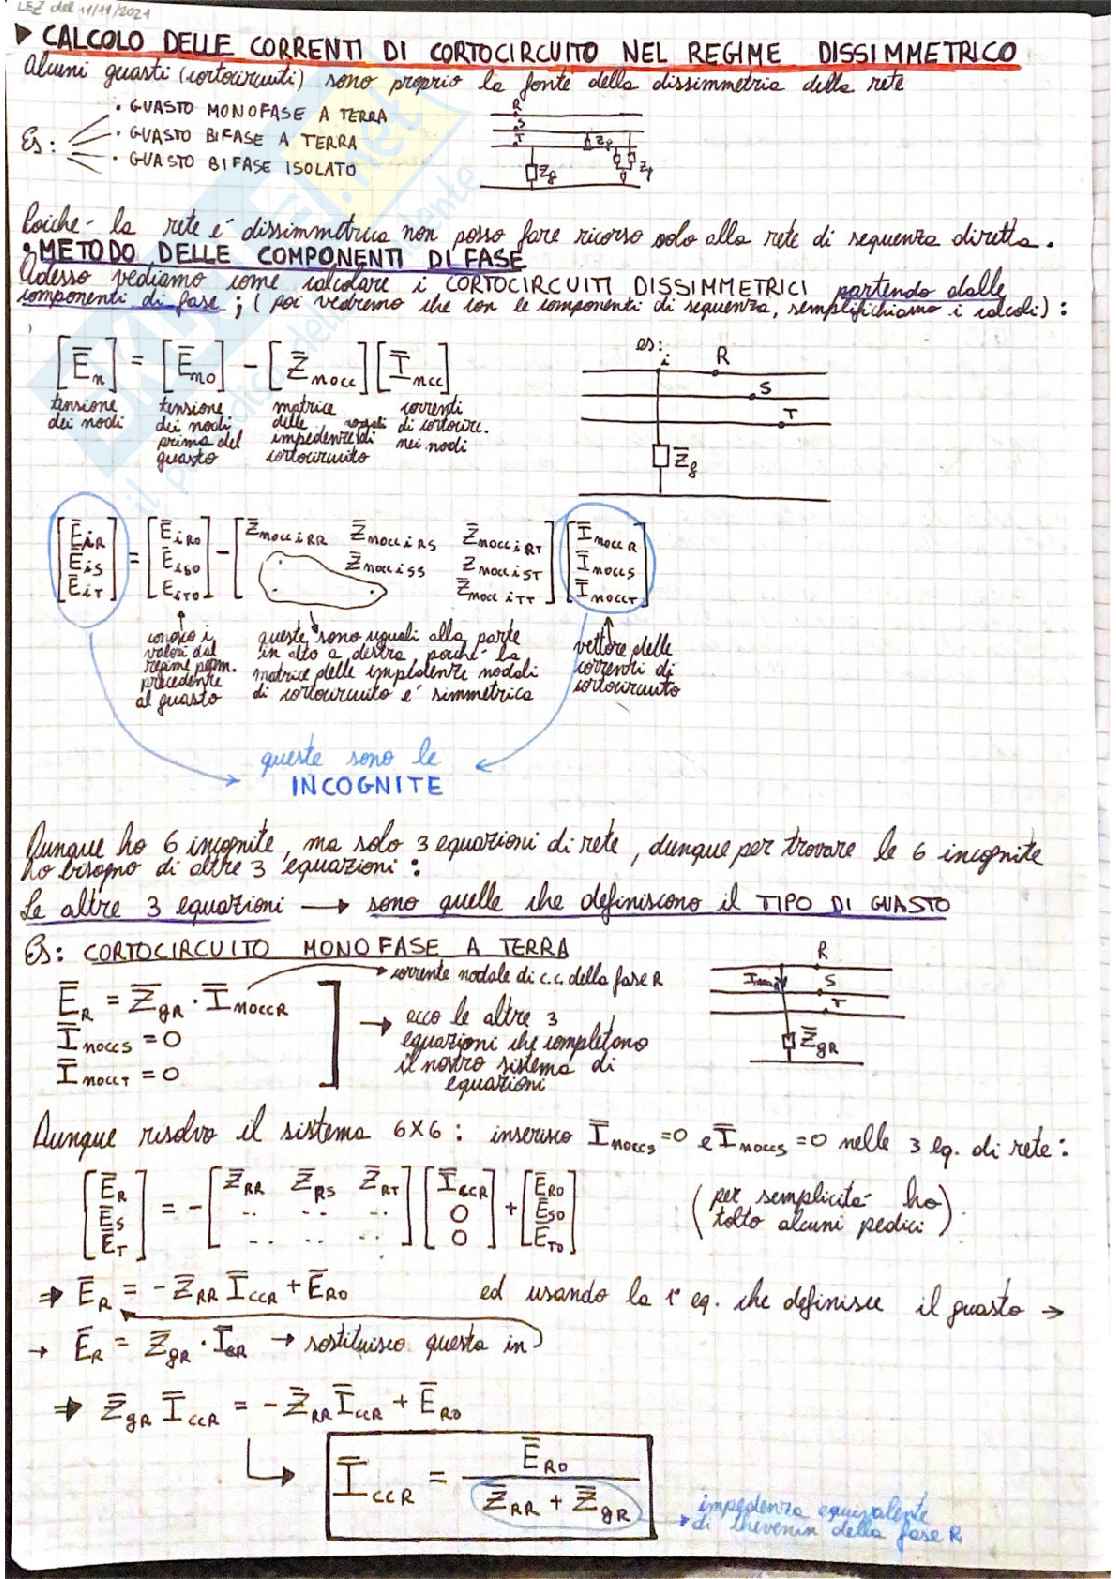 LEZ del 11/11/2021
► CALCOLO DELLE CORRENTI DI CORTOCIRCUITO NEL REGIME DISSIMMETRICO
Alcuni guasti (cortocircuiti) sono proprio la fonte della dissimmetria della rete
Es:
· GUASTO MONOFASE A TERRA
· GUASTO BIFASE A TERRA
· GUASTO BIFASE ISOLATO
R
S
T
Z̄g
Z̄g
Z̄g
Poiche- la rete e- dissimmetrica non posso fare ricorso solo alla rete di sequenza diretta.
• METODO DELLE COMPONENTI DI FASE
Adesso vediamo come calcolare i CORTOCIRCUITI DISSIMMETRICI partendo dalle
componenti di fase; (poi vedremo che con le componenti di sequenza, semplifichiamo i calcoli):
[Ēn] = [Ēno] - [Z̄nocc][Īncc]
tensione dei nodi
tensione dei nodi prima del guasto
matrice delle impedenze nodali di cortocircuito
correnti di cortocirc. nei nodi
es:
i
R
S
T
Z̄g
[ĒiR ĒiS ĒiT] = [ĒiRO ĒiSO EiTO] - [Z̄nocciRR Z̄nocciRS Z̄nocciRT Z̄nocciSS Z nocciST Z̄nocciTT] [ĪnoccR ĪnoccS ĪnoccT]
conosco i valori dal regime perm. precedente al guasto
queste sono uguali alla parte in alto a destra poiche- la matrice delle impedenze nodali di cortocircuito e' simmetrica
vettore delle correnti di cortocircuito
queste sono le
INCOGNITE
Dunque ho 6 incognite, ma solo 3 equazioni di rete, dunque per trovare le 6 incognite
ho bisogno di altre 3 equazioni:
Le altre 3 equazioni → sono quelle che definiscono il TIPO DI GUASTO
Es: CORTOCIRCUITO MONOFASE A TERRA
corrente nodale di c.c. della fase R
ĒR = Z̄gR · ĪnoccR
ĪnoccS = 0
ĪnoccT = 0
→ ecco le altre 3
equazioni che completano
il nostro sistema di
equazioni
R
S
T
Z̄gR
Dunque risolvo il sistema 6X6: inserisco Īnoccs=0 e Īnoccs=0 nelle 3 eq. di rete:
[ĒR ĒS ĒT] = - [Z̄RR Z̄RS Z̄RT .. .. .. .. .. ..] [ĪccR 0 0] + [ĒRO ĒSO ĒTO]
(per semplicità ho
tolto alcuni pedici)
⇒ ĒR = -Z̄RR ĪccR + ĒRO ed usando la 1ª eq. che definisce il guasto →
→ ĒR = Z̄gR · ĪccR → sostituisco questa in
⇒ Z̄gR ĪccR = -Z̄RR ĪccR + ĒRO
ĪccR = ĒRO / (Z̄RR + Z̄gR)
impedenza equivalente
di thevenin della fase R